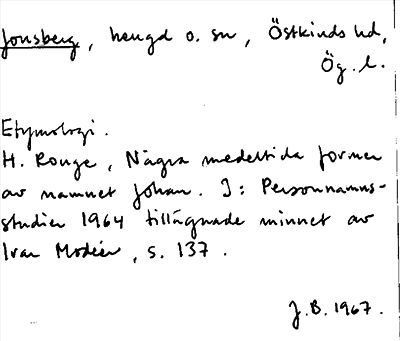 Jonsberg, hengd o. sn, Östkinds hd,
Ög. l.
Etymologi.
H. Ronge, Några medeltida former
av namnet Johan. I: Personnamns-
studier 1964 tillägnade minnet av
Ivar Modéer, s. 137.
J.B. 1967.